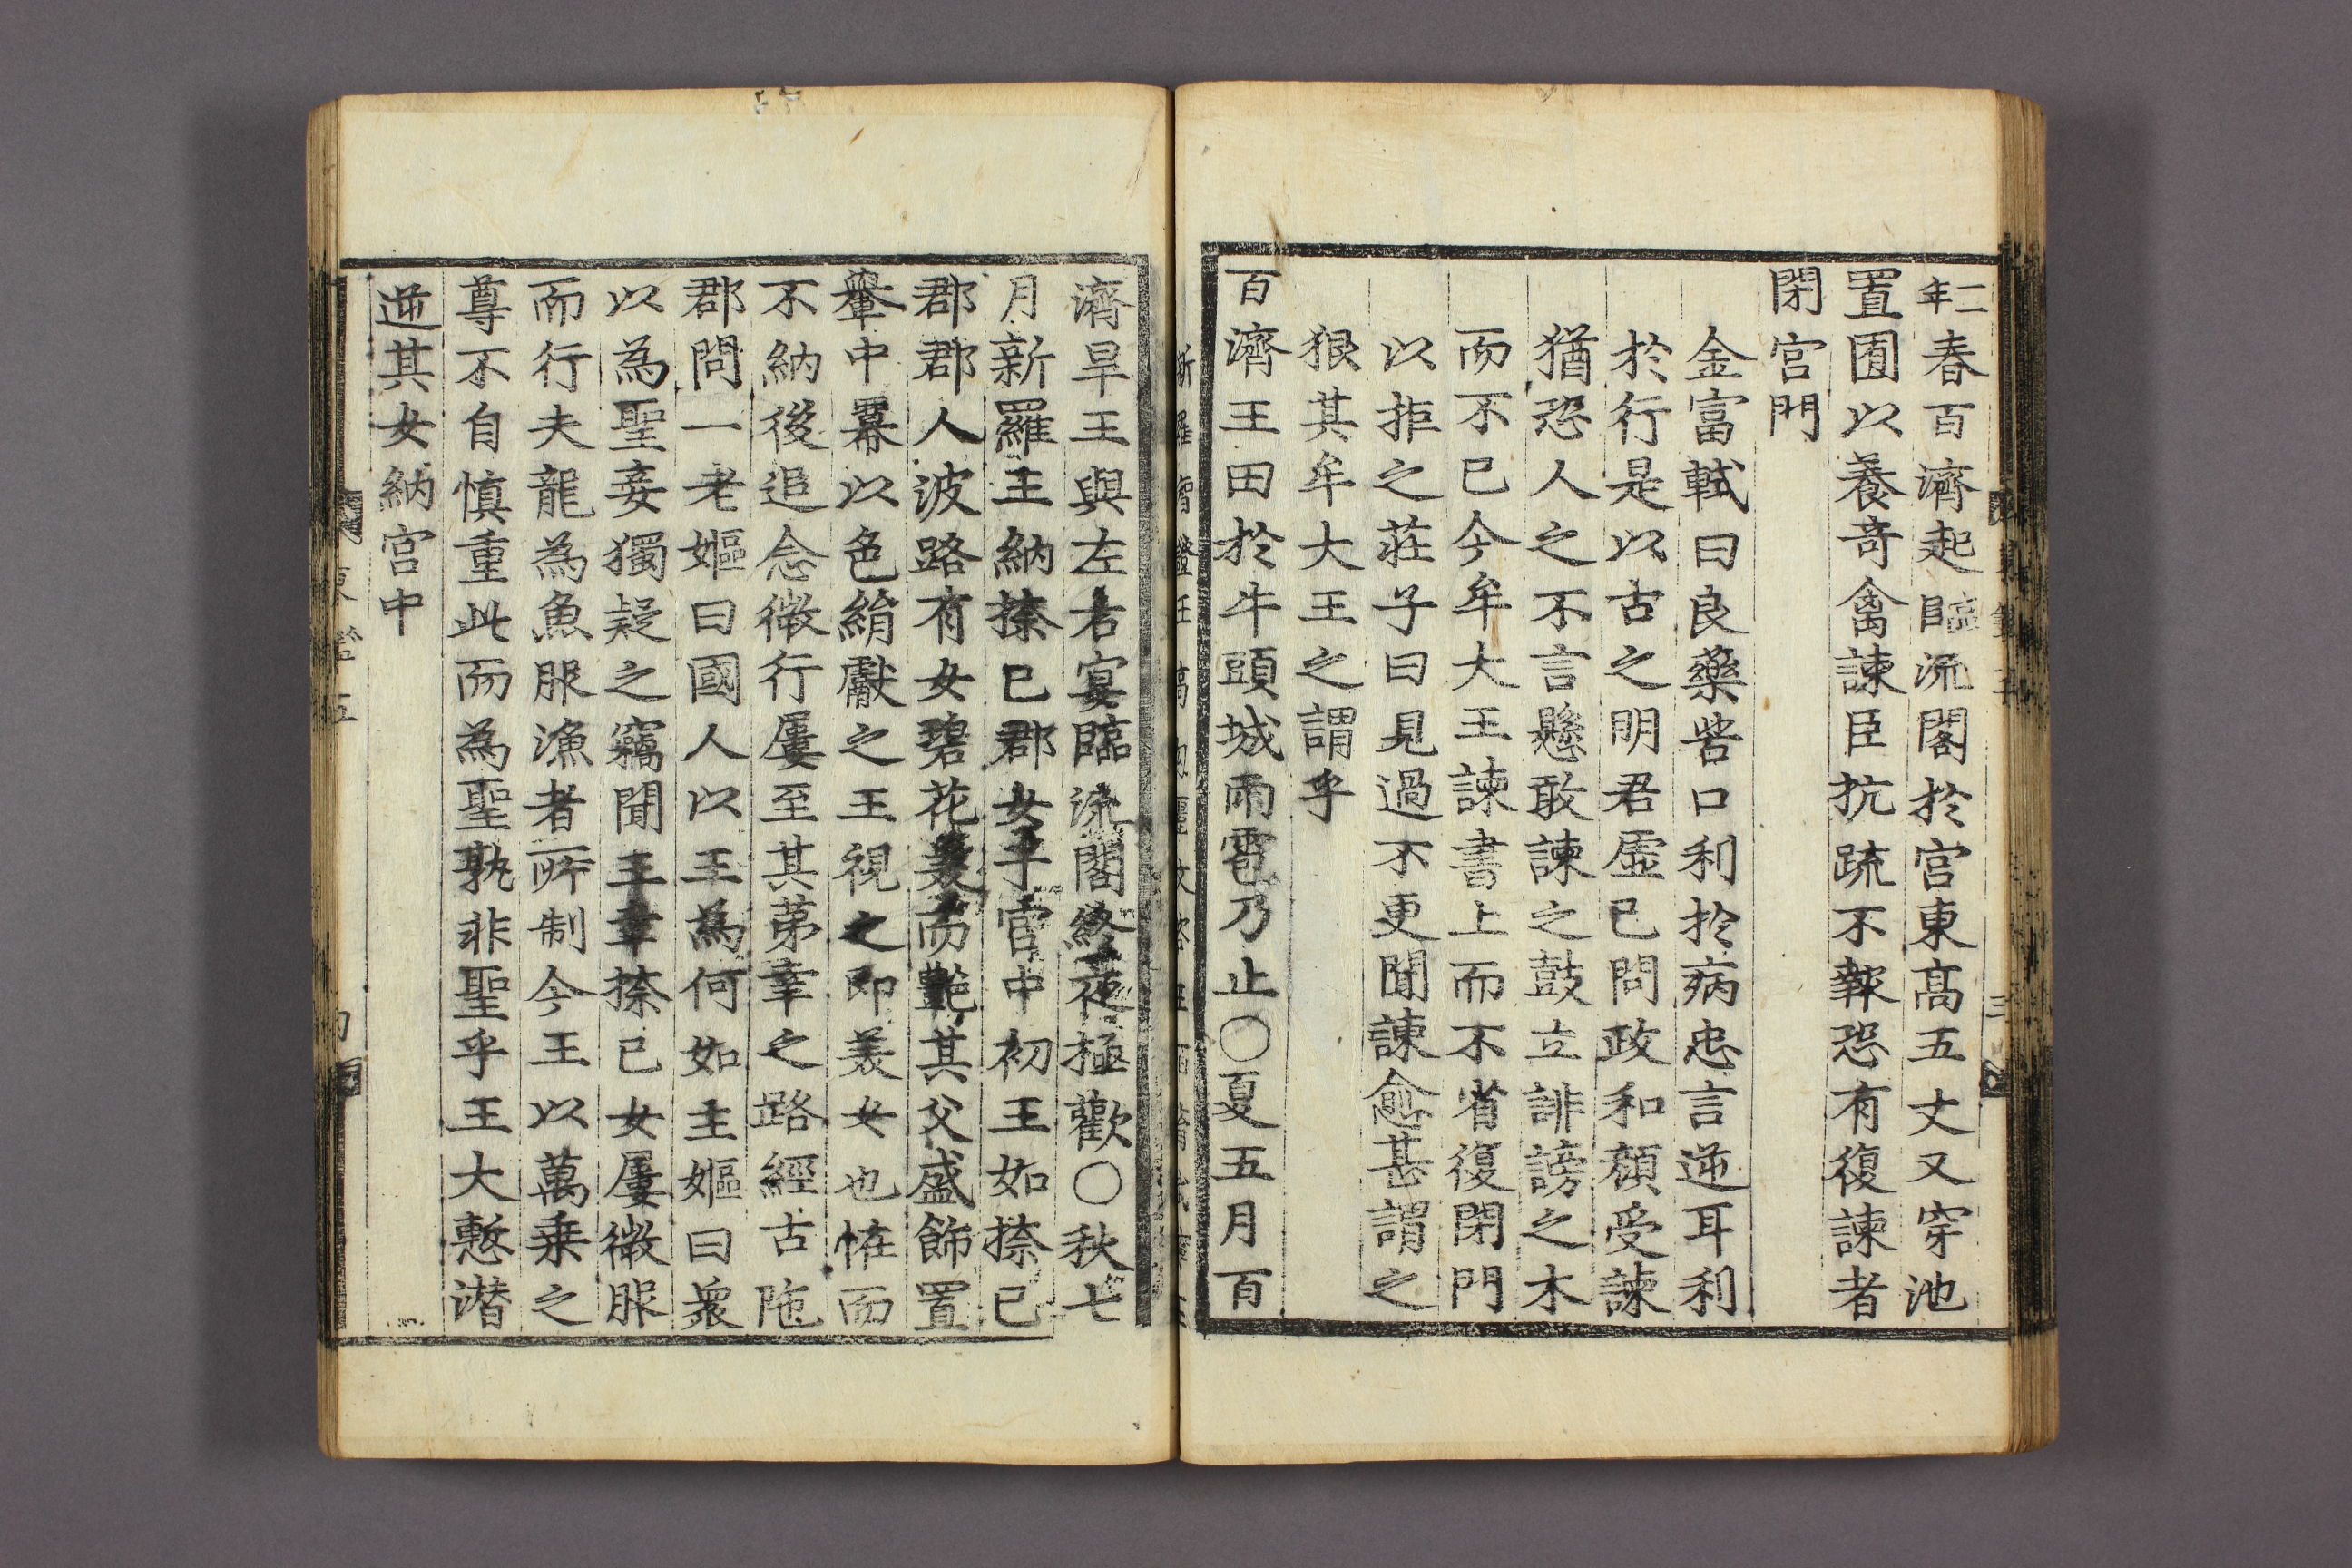 二年春百濟起臨流閣於宫東髙五丈又穿池
置囿以養奇禽諫臣抗䟽不報恐有復諫者
閉宫門
金富軾曰良藥苦口利於病忠言逆耳利
於行是以古之明君虛已問政和顔受諫
猶恐人之不言懸敢諫之鼓立誹謗之木
而不已今牟大王諫書上而不省復閉門
以拒之莊子曰見過不更聞諫愈甚謂之
狠其牟大王之謂乎
百濟王田於牛頭城雨雹乃止〇夏五月百
濟旱王與左右宴臨流閣終夜極歡〇秋七
月新羅王納捺已郡女子宫中初王如捺已
郡郡人波路有女碧花美而艶其父盛飾置
轝中羃以色絹獻之王視之即美女也恠而
不納後追念微行屢至其苐幸之路經古陁
郡問一老嫗曰國人以王爲何如主嫗曰衆
以爲聖妾獨疑之竊聞王幸捺已女屢微服
而行夫龍爲魚服漁者所制今王以萬乗之
尊不自愼重此而爲聖孰非聖乎王大慙潜
逆其女納宫中